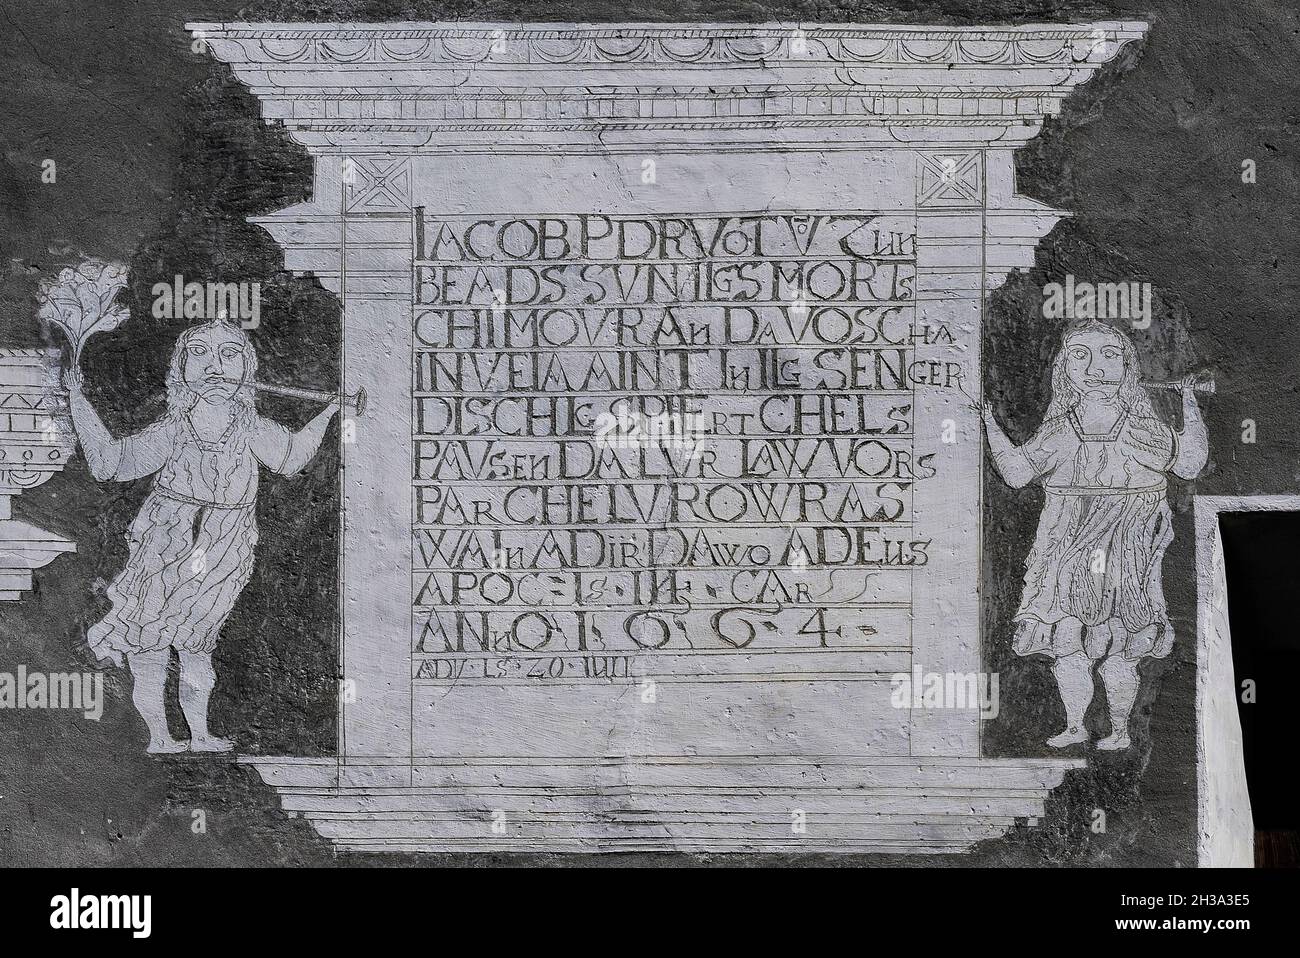 IACOB P DRVOT V ZUN
BEADS SVN ILGS MORTS
CHI MOVRAN DAVOSCHA
IN VEIA MINT IN ILG SENGER
DISCH ILG SPIERT CHELS
PAVSEN DA LUR LAWVORS
PARCHE LVR OWRAS
WAIN ADIR DAWO ADELLS
APOC = IS · 14 · CAP
ANNO · 1 · 6 · 6 · 4 · =
ADY · LS · 20 · IUII
a alamy
alamy
Image ID: 2H3A3E5
www.alamy.com